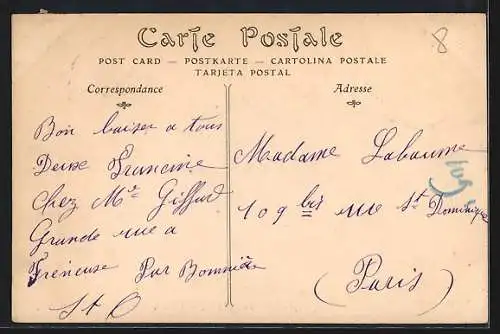 8
Carte Postale
POST CARD — POSTKARTE — CARTOLINA POSTALE
TARJETA POSTAL
Correspondance
Adresse
Bon baiser a tous
Deux Francine
Chez Mr Giffard
Grande rue a
Freneuse Par Bonnière
S et O
Madame Labaume
109 bis rue St Dominique
(Paris)